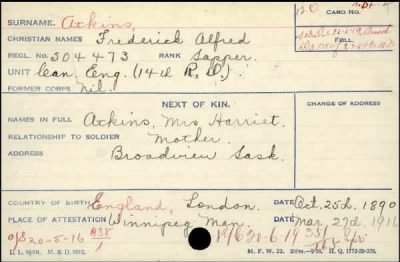 SURNAME. Atkins, CARD NO.
CHRISTIAN NAMES Frederick Alfred
REGL. NO. 504473 RANK Sapper.
FOLL.
UNIT Can. Eng. (14th R.D.).
FORMER CORPS Nil.
NEXT OF KIN. CHANGE OF ADDRESS
NAMES IN FULL Atkins, Mrs Harriet.
RELATIONSHIP TO SOLDIER Mother.
ADDRESS Broadview Sask.
COUNTRY OF BIRTH England, London. DATE Oct. 25th. 1890
PLACE OF ATTESTATION Winnipeg Man. DATE Mar. 27th. 1916
O/S 20-5-16 20-6-19
M. F. W. 22.